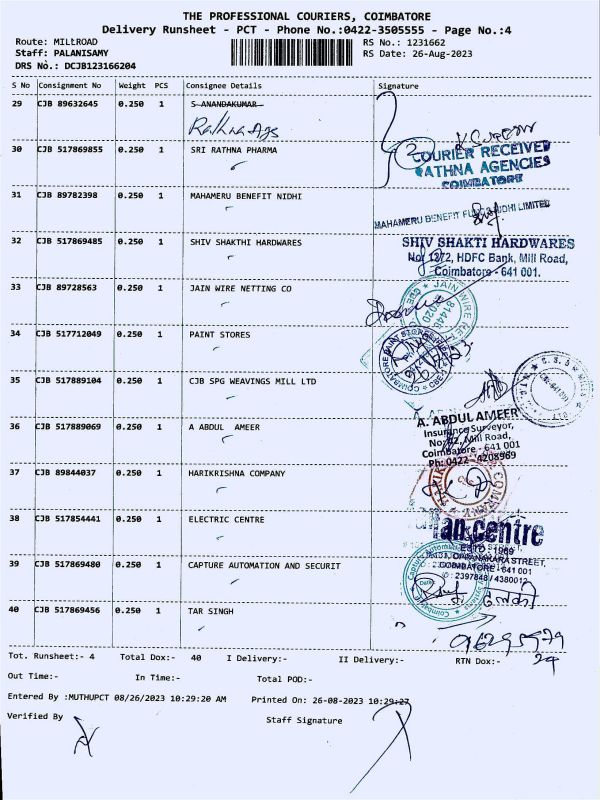 THE PROFESSIONAL COURIERS, COIMBATORE
Delivery Runsheet - PCT - Phone No.:0422-3505555 - Page No.:4
Route: MILLROAD
RS No.: 1231662
Staff: PALANISAMY
RS Date: 26-Aug-2023
DRS No.: DCJB123166204
S No Consignment No Weight PCS Consignee Details Signature
29 CJB 89632645 0.250 1 S ANANDAKUMAR
Rathna Ags
30 CJB 517869855 0.250 1 SRI RATHNA PHARMA
COURIER RECEIVED
RATHNA AGENCIES
COIMBATORE
31 CJB 89782398 0.250 1 MAHAMERU BENEFIT NIDHI
MAHAMERU BENEFIT FUND NIDHI LIMITED
32 CJB 517869485 0.250 1 SHIV SHAKTHI HARDWARES
SHIV SHAKTI HARDWARES
No: 1272, HDFC Bank, Mill Road,
Coimbatore - 641 001.
33 CJB 89728563 0.250 1 JAIN WIRE NETTING CO
34 CJB 517712049 0.250 1 PAINT STORES
35 CJB 517889104 0.250 1 CJB SPG WEAVINGS MILL LTD
36 CJB 517889069 0.250 1 A ABDUL AMEER
A. ABDUL AMEER
Insurance Surveyor,
Mill Road,
Coimbatore - 641 001
Ph: 0422 - 4208969
37 CJB 89844037 0.250 1 HARIKRISHNA COMPANY
38 CJB 517854441 0.250 1 ELECTRIC CENTRE
fan centre
ESTD - 1969
STREET,
COIMBATORE - 641 001
: 2397848 / 4380012
39 CJB 517869480 0.250 1 CAPTURE AUTOMATION AND SECURIT
40 CJB 517869456 0.250 1 TAR SINGH
Tot. Runsheet:- 4 Total Dox:- 40 I Delivery:- II Delivery:- RTN Dox:-
Out Time:- In Time:- Total POD:-
Entered By :MUTHUPCT 08/26/2023 10:29:20 AM Printed On: 26-08-2023 10:29:27
Verified By Staff Signature